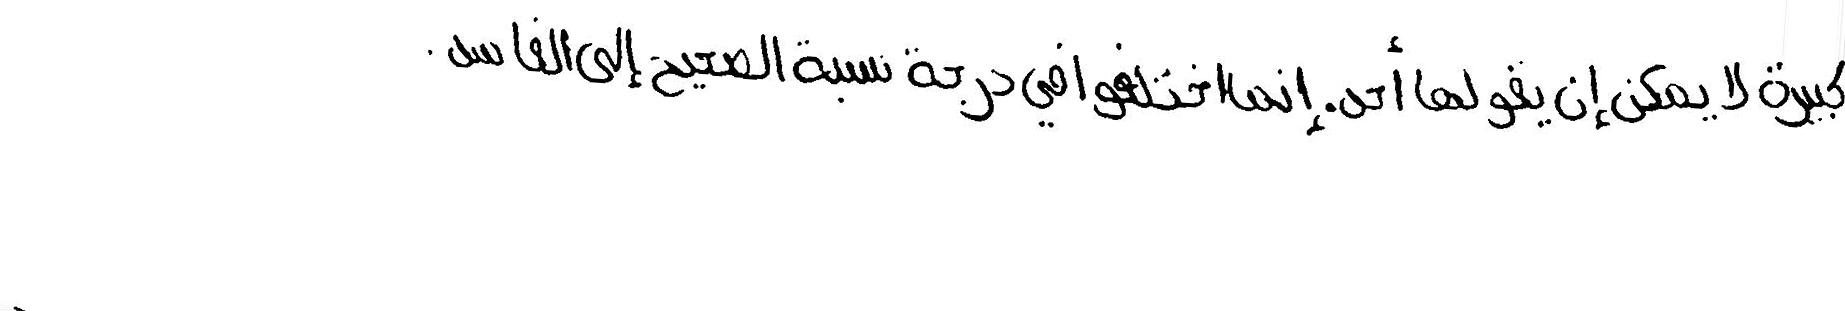 كبيرة لا يمكن إن يقولها أحد. إنما اختلفوا في درجة نسبة الصحيح إلى الفاسد.